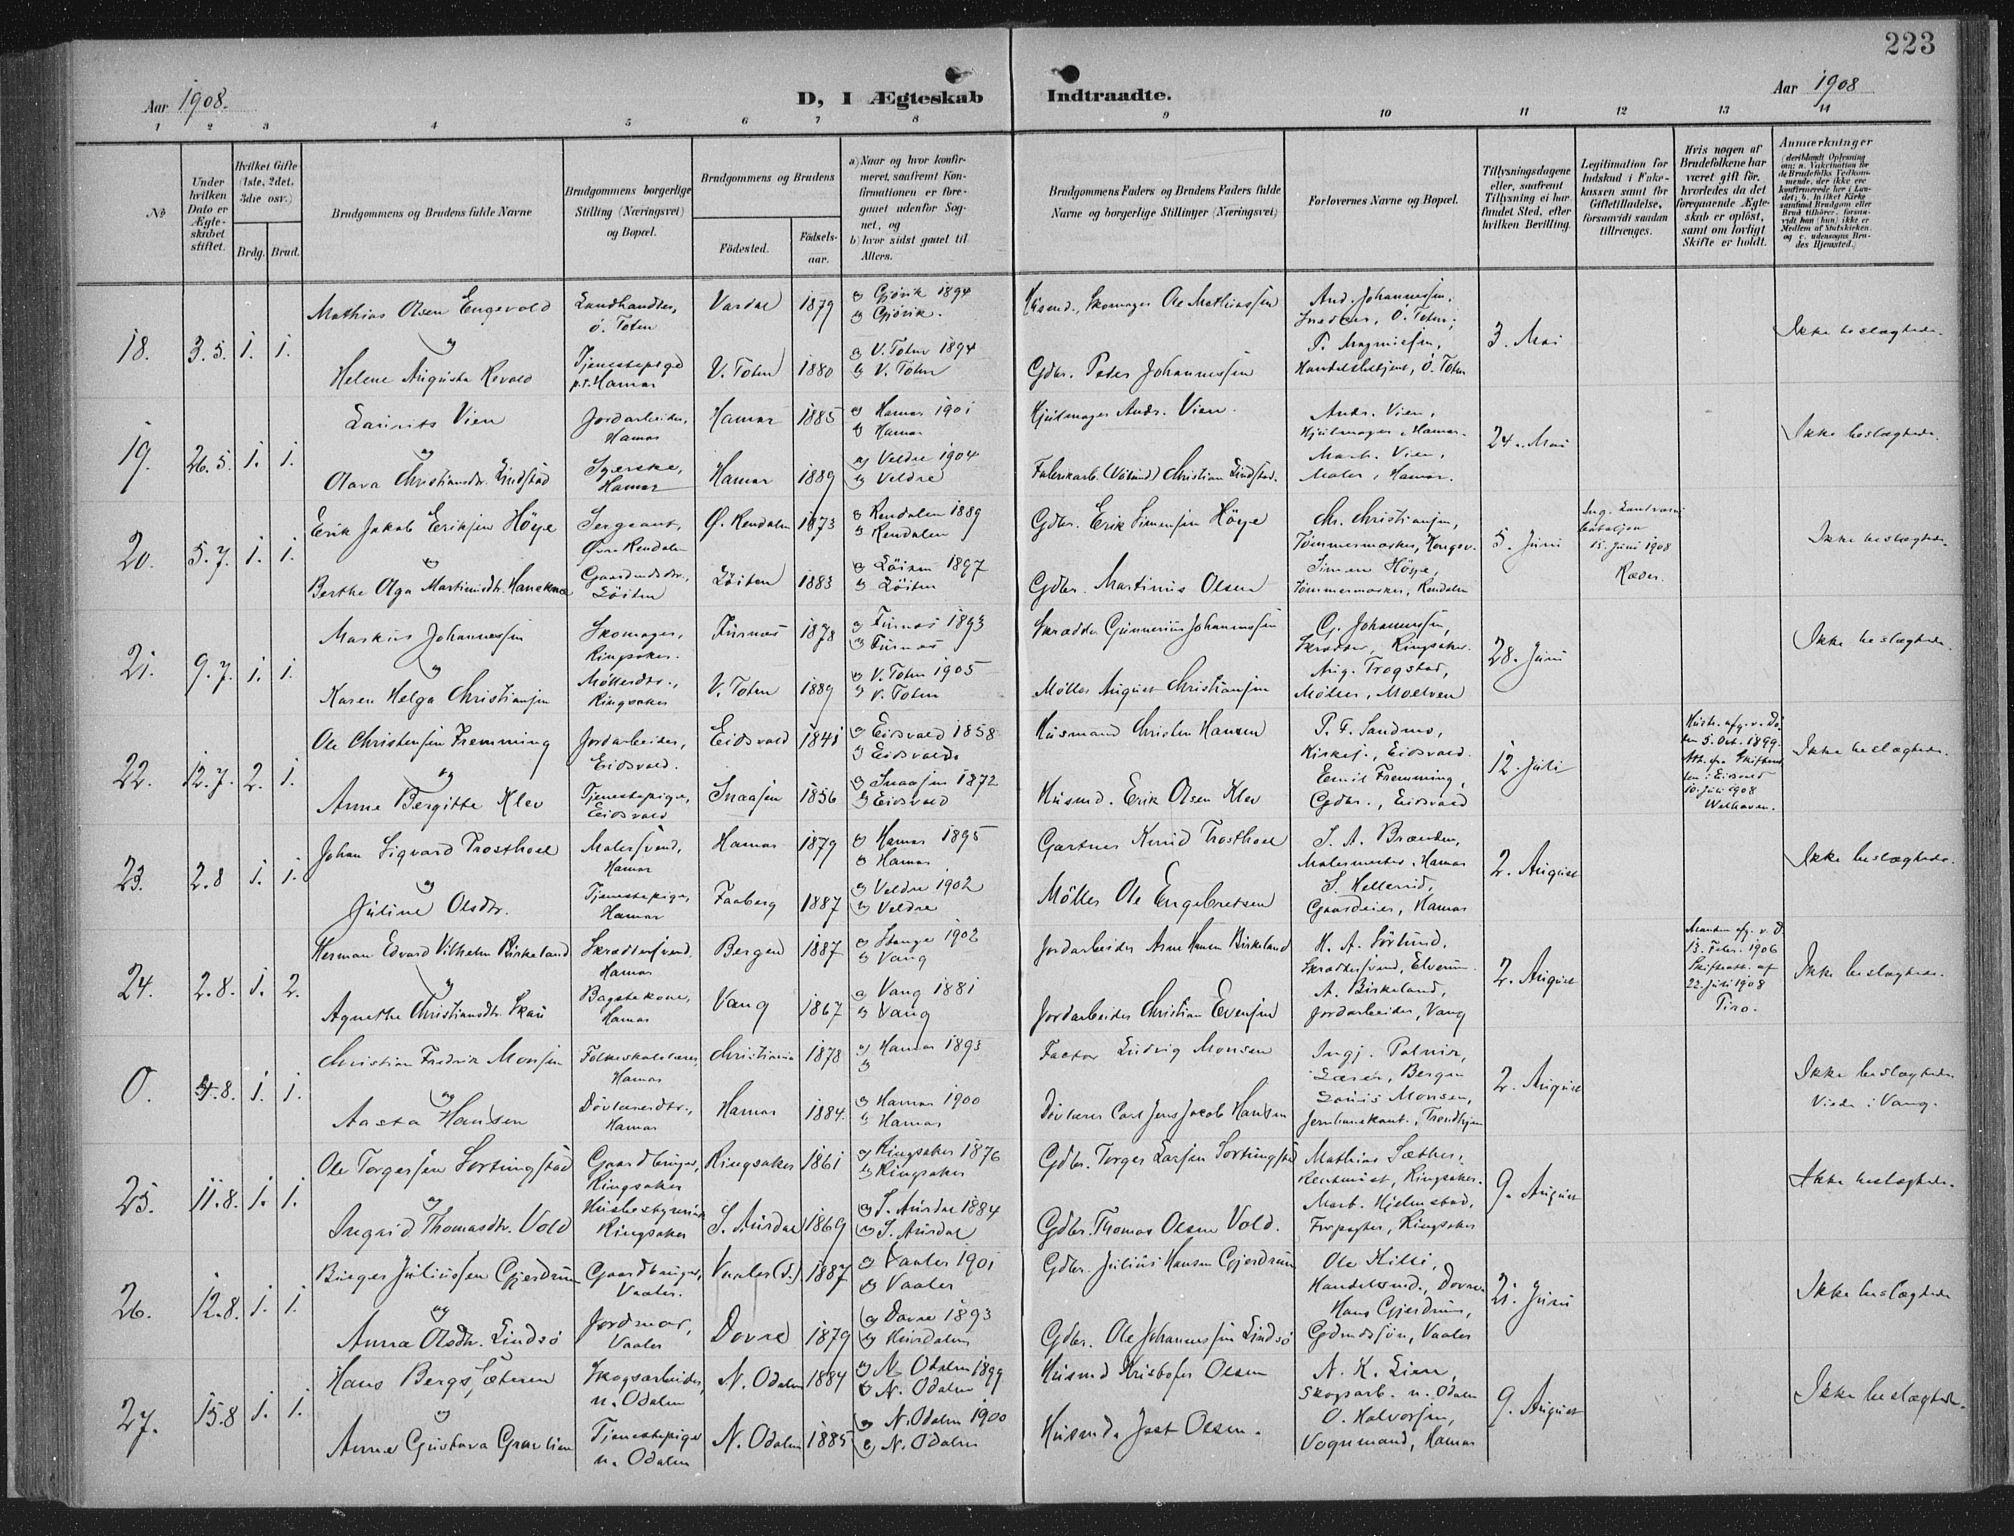 223
Aar 1908.
D, I Ægteskab Indtraadte.
Aar 1908
1 2 3 4 5 6 7 8 9 10 11 12 13 14
No
Under hvilken Dato er Ægteskabet stiftet.
Hvilket Gifte (1ste, 2det, 3die osv.)
Brdg. Brud.
Brudgommens og Brudens fulde Navne
Brudgommens borgerlige Stilling (Næringsvei) og Bopæl.
Brudgommens og Brudens
Födested.
Födselsaar.
a) Naar og hvor konfirmeret, saafremt Konfirmationen er foregaaet udenfor Sognet, og
b) hvor sidst gaaet til Alters.
Brudgommens Faders og Brudens Faders fulde Navne og borgerlige Stillinger (Næringsvei)
Forlovernes Navne og Bopæl.
Tillysningsdagene eller, saafremt Tillysning ei har fundet Sted, efter hvilken Bevilling.
Legitimation for Indskud i Enkekassen samt for Giftetilladelse, forsaavidt saadan tiltrænges.
Hvis nogen af Brudefolkene har været gift för, hvorledes da det foregaaende Ægteskab er oplöst, samt om lovligt Skifte er holdt.
Anmærkninger
18. 3.5. 1. 1.
Mathias Olsen Engevold
og
Helene Augusta Revold
Landhandler, Ö. Toten
Tjenestepige p.t. Hamar
Vardal 1879
V. Toten 1880
a) Gjövik 1894
b) Gjövik.
a) V. Toten 1894
b) V. Toten
Husmd., Skomager Ole Mathiassen
Gdbr. Peder Johannessen
And. Johannessen, Snedker, Ö. Toten;
P. Magnussen, Handelsbetjent, Ö. Toten
3. Mai
Ikke beslægtede.
19. 26.5. 1. 1.
Laurits Vien
og
Olava Christiansdtr. Lindstad
Jordarbeider, Hamar
Syerske, Hamar
Hamar 1885
Hamar 1889
a) Hamar 1901
b) Hamar
a) Veldre 1904
b) Veldre
Hjulmager Andr. Vien.
Fabrikarb. Christian Lindstad.
Andr. Vien, Hjulmager, Hamar.
Mart. Vien, Maler, Hamar.
24. Mai
Ikke beslægtede.
20. 5.7. 1. 1.
Erik Jakob Eriksen Höye
og
Berthe Olga Martinusdtr.
Sergeant, Övre Rendalen
Gaardmdsdtr., Löiten
Ø. Rendalen 1873
Löiten 1883
a) Rendalen 1889
b) Rendalen
a) Löiten 1897
b) Löiten
Gdbr. Erik Simensen Höye
Gdbr. Martinus Olsen
Chr. Christiansen, Tömmermerker, Kongsv.
Simen Höye, Tömmermerker, Rendalen
5. Juni
15. Juni 1908
Ræder.
Ikke beslægtede.
21. 9.7. 1. 1.
Markus Johannessen
og
Karen Helga Christiansen
Skomager, Ringsaker.
Möllerdtr., Ringsaker
Furnes 1878
V. Toten 1889
a) Furnes 1893
b) Furnes
a) V. Toten 1905
b) V. Toten
Skrædder Gunnerius Johannessen
Möller August Christiansen
G. Johannessen, Skrædder, Ringsaker.
Aug. Trogstad, Möller, Moelven
28. Juni
Ikke beslægtede.
22. 12.7. 2. 1.
Ole Christensen Fremming
og
Anne Bergitte Klev
Jordarbeider, Eidsvold.
Tjenestepige, Eidsvold
Eidsvold 1841
Snaasen 1856
a) Eidsvold 1858
b) Eidsvold
a) Snaasen 1872
b) Eidsvold
Husmand Christen Hansen
Husmd. Erik Olsen Klev
P. F. Sandmo, Kirkesj., Eidsvold.
Emil Fremming, Gdbr., Eidsvold
12. Juli
Hustr. afg. v. Döden 5. Okt. 1899.
Att. fra Skifteretten i Eidsvold 10. Juli 1908
Welhaven.
Ikke beslægtede.
23. 2.8 1. 1.
Johan Sigvard Trosthoel
og
Juline Olsdtr.
Malersvend, Hamar
Tjenestepige, Hamar
Hamar 1879
Faaberg 1887
a) Hamar 1895
b) Hamar
a) Veldre 1902
b) Veldre
Gartner Knud Trosthoel
Möller Ole Engebretsen
J. A. Brænden, Malermester, Hamar
S. Hellerud, Gaardeier, Hamar
2. August
Ikke beslægtede.
24. 2.8. 1. 2.
Herman Edvard Vilhelm Birkeland
og
Agnethe Christiansdtr. Skau
Skræddersvend, Hamar
Bagstekone, Hamar
Bergen 1887
Vang 1867
a) Stange 1902
b) Vang
a) Vang 1881
b) Vang
Jordarbeider Arne Hansen Birkeland
Jordarbeider Christian Evensen
H. A. Sörlund, Skræddersvend, Elverum.
A. Birkeland, Jordarbeider, Vang
2. August
Manden afg. v. D. 13. Febr. 1906
Skifteatt. af 22. Juli 1908
Ikke beslægtede.
O. 4.8. 1. 1.
Christian Fredrik Monsen
og
Aasta Hansen
Folkeskolelærer Hamar
Dövlærerdtr., Hamar
Christiania 1878
Hamar 1884.
a) Hamar 1893
b)
a) Hamar 1900
b) Hamar
Factor Ludvig Monsen
Dövlærer Carl Jens Jacob Hansen
Lærer, Bergen
Louis Monsen, Jernbanekont., Trondhjem
2. August
Ikke beslægtede
Viede i Vang.
25. 11.8. 1. 1.
Ole Torgersen Sortungstad
og
Ingrid Thomasdtr. Vold
Gaardbruger, Ringsaker
Husbestyrerinde Ringsaker
Ringsaker 1861
S. Aurdal 1869
a) Ringsaker 1876
b) Ringsaker
a) S. Aurdal 1884
b) S. Aurdal
Gdbr. Torger Larsen Sortungstad
Gdbr. Thomas Olsen Vold.
Mathias Sæther, Rentenist, Ringsaker.
Mart. Hjelmstad, Forpagter, Ringsaker
9. August
Ikke beslægtede.
26. 12.8. 1. 1.
Birger Juliussen Gjerdrum
og
Anna Olsdtr. Lindsö
Gaardbruger, Vaaler.
Jordmor, Vaaler
Vaaler (S.) 1887
Dovre 1879
a) Vaaler 1901
b) Vaaler
a) Dovre 1893
b) Hurdalen
Gdbr. Julius Hansen Gjerdrum
Gdbr. Ole Johannessen Lindsö
Ole Killi, Handelsmd., Dovre
Hans Gjerdrum, Gdmdssön, Vaaler
21. Juni
Ikke beslægtede
27. 15.8 1. 1.
Hans Bergsæteren
og
Anne Gustava Gravlien
Skogsarbeider, n. Odalen
Tjenestepige n. Odalen
N. Odalen 1884
N. Odalen 1885
a) N. Odalen 1899
b) N. Odalen
a) N. Odalen 1900
b) N. Odalen
Husmd Kristofer Olsen
Husmd. Jost Olsen.
N. K. Lien, Skogsarb. n. Odalen
O. Halvorsen, Vognmand, Hamar
9. August
Ikke beslægtede.